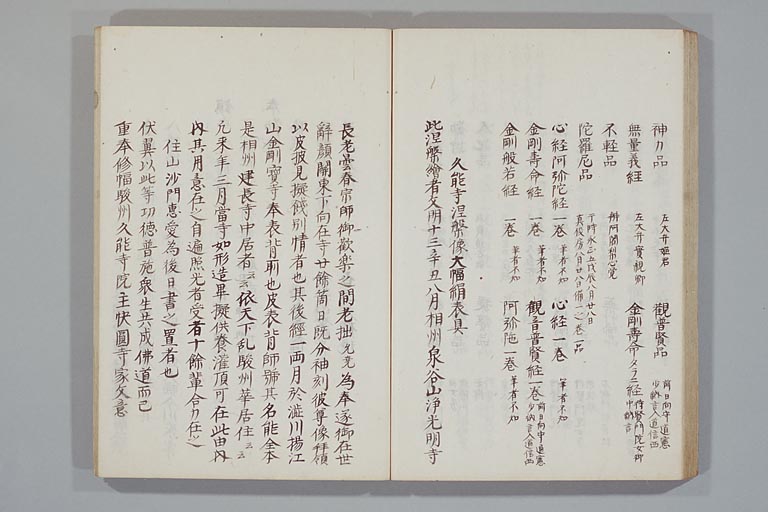 神力品　左大弁姫君　観普賢品　前日向守通憲少納言入道信西
無量義経　左大弁實親卿　金剛壽命タラニ経　待賢門院女御中納言
不軽品　弁阿闍梨心覚
陀羅尼品
心経阿弥陀経一巻　筆者不知　心経一巻　筆者不知
金剛壽命経　一巻　筆者不知　観音普賢経一巻　前日向守通憲少納言入道信西
金剛般若経　一巻　筆者不知　阿弥陀一巻　筆者不知
久能寺涅槃像大幅絹表具
此涅槃繪者文明十三辛丑八月相州泉谷山浄光明寺
長老曇春宗師御歓楽之間老拙允為奉遂御在世
辭顔關東下向在寺廿餘箇日既分袖刻彼尊像拝領
以皮披見擬餞別情者也其後經一両月於澁川揚江
山金剛寶寺奉表背所也皮表背師號其名能全本
是相州建長寺中居者云云依天下乱駿州華居住云云
九来年二月當寺如形造畢擬供養灌頂可在此由内
内其用意在之自遍照光者受者十餘輩合力在之
住山沙門恵愛為後日書之置者也
伏翼以此等功徳普施衆生共成佛道而已
重奉修幅駿州久能寺院主快圓寺家矢意